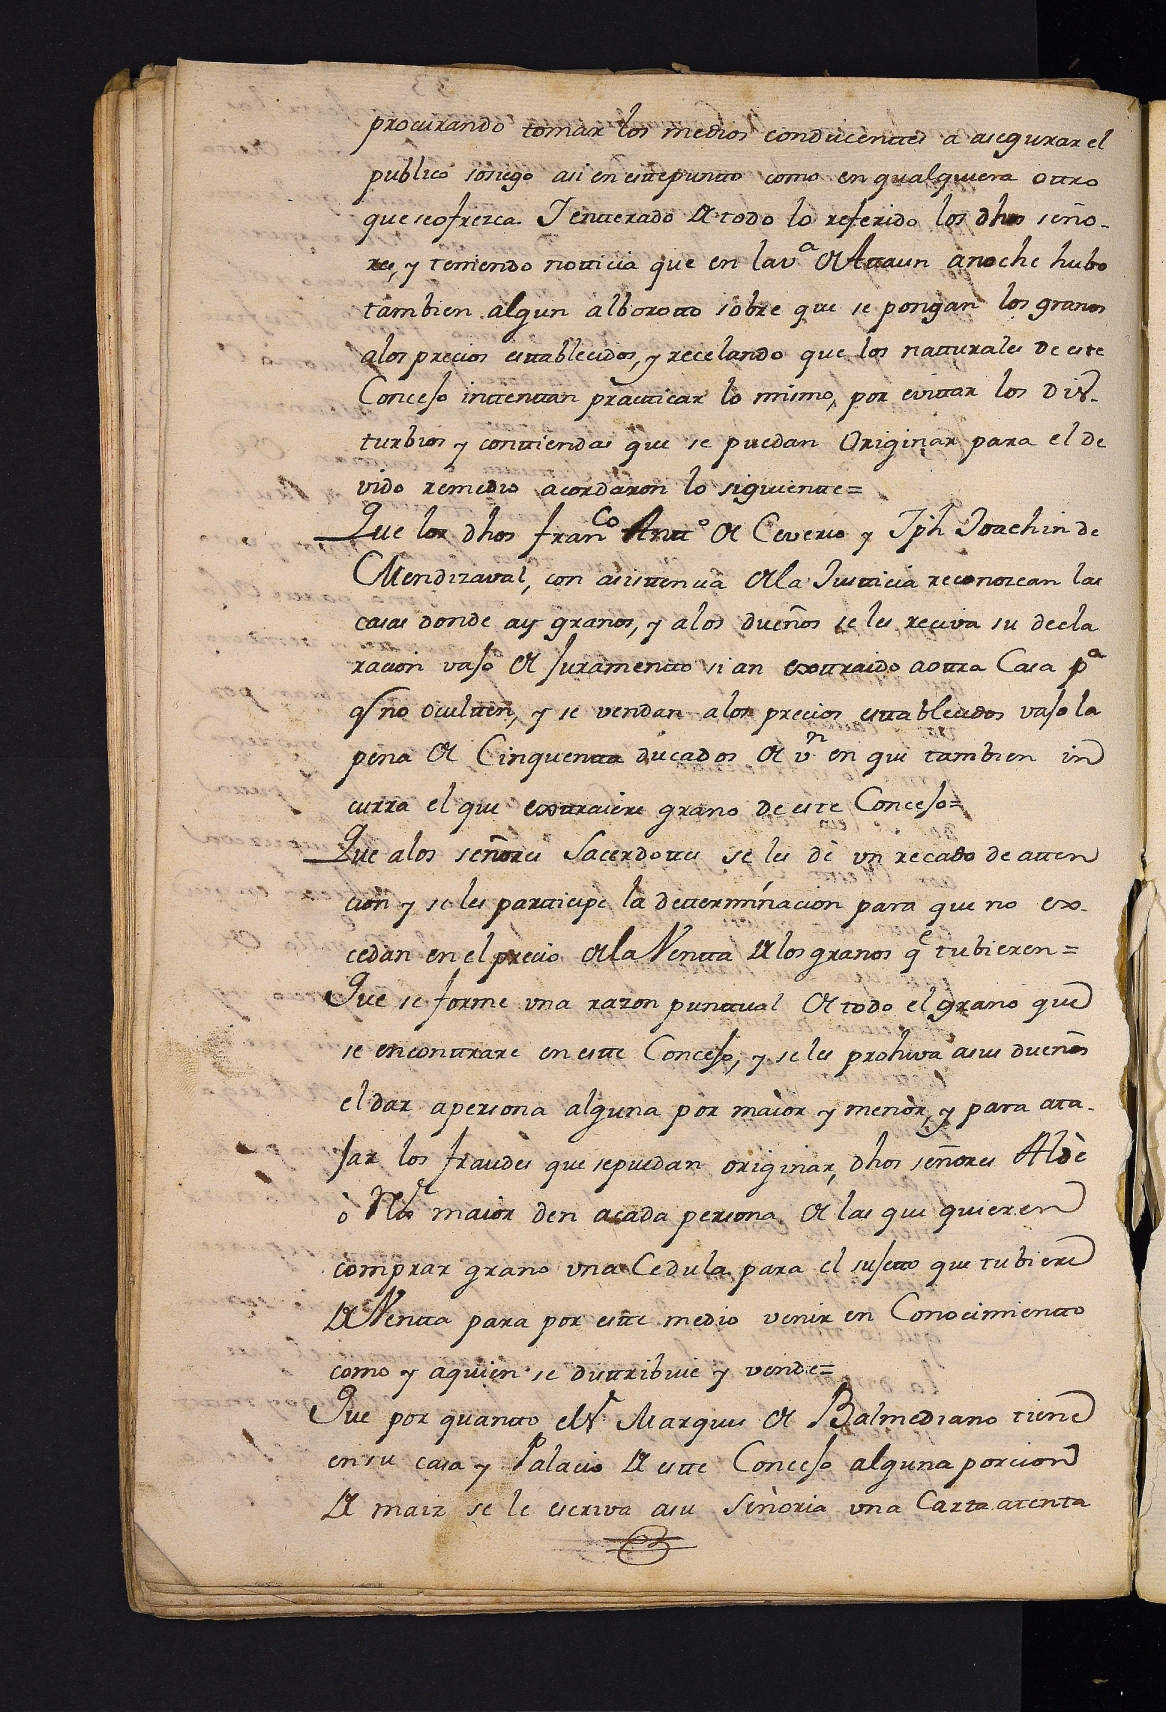 procurando tomar los medios conducenttes a asegurar el
publico sosiego asi en estte puntto como en qualquiera ottro
que se ofrezca. I entterado de todo lo referido los dhos seño-
res, y teniendo notticia que en la vª de Attaun anoche hubo
tambien algun alborotto sobre que se pongan los granos
a los precios esttablecidos, y recelando que los natturales de este
Concejo inttenttan practticar lo mismo, por evittar los dis-
turbios y conttiendas que se puedan originar para el de
vido remedio acordaron lo siguientte=
Que los dhos franco Antto de Ceverio y Jph Joachin de
Mendizaval, con asisttencia de la Justticia reconozcan las
casas donde ay granos, y a los dueños se les reciva su decla
racion vajo de juramentto si an exttraido a ottra Casa pª
q no ocultten, y se vendan a los precios esttablecidos vajo la
pena de Cinquentta ducados de vn en que tambien in
curra el que exttraiere grano de este Concejo=
Que a los señores Sacerdottes se les dè vn recado de atten
cion y se les partticipe la detterminacion para que no ex-
cedan en el precio de la Ventta de los granos qe tubieren=
Que se forme vna razon punttual de todo el grano que
se enconttrare en estte Concejo, y se les prohiva a sus dueños
el dar a persona alguna por maior y menor, y para ata-
jar los fraudes que se puedan originar, dhos señores Alde
ò maior den a cada persona de las que quieren
comprar grano vna Cedula para el sujetto que tubiere
de Ventta para por estte medio venir en Conocimientto
como y a quien se disttribuie y vende=
Que por quantto el Sr Marques de Balmediano tiene
en su casa y Palacio de estte Concejo alguna porcion
de maiz se le escriva a su Señoria vna Carta atenta